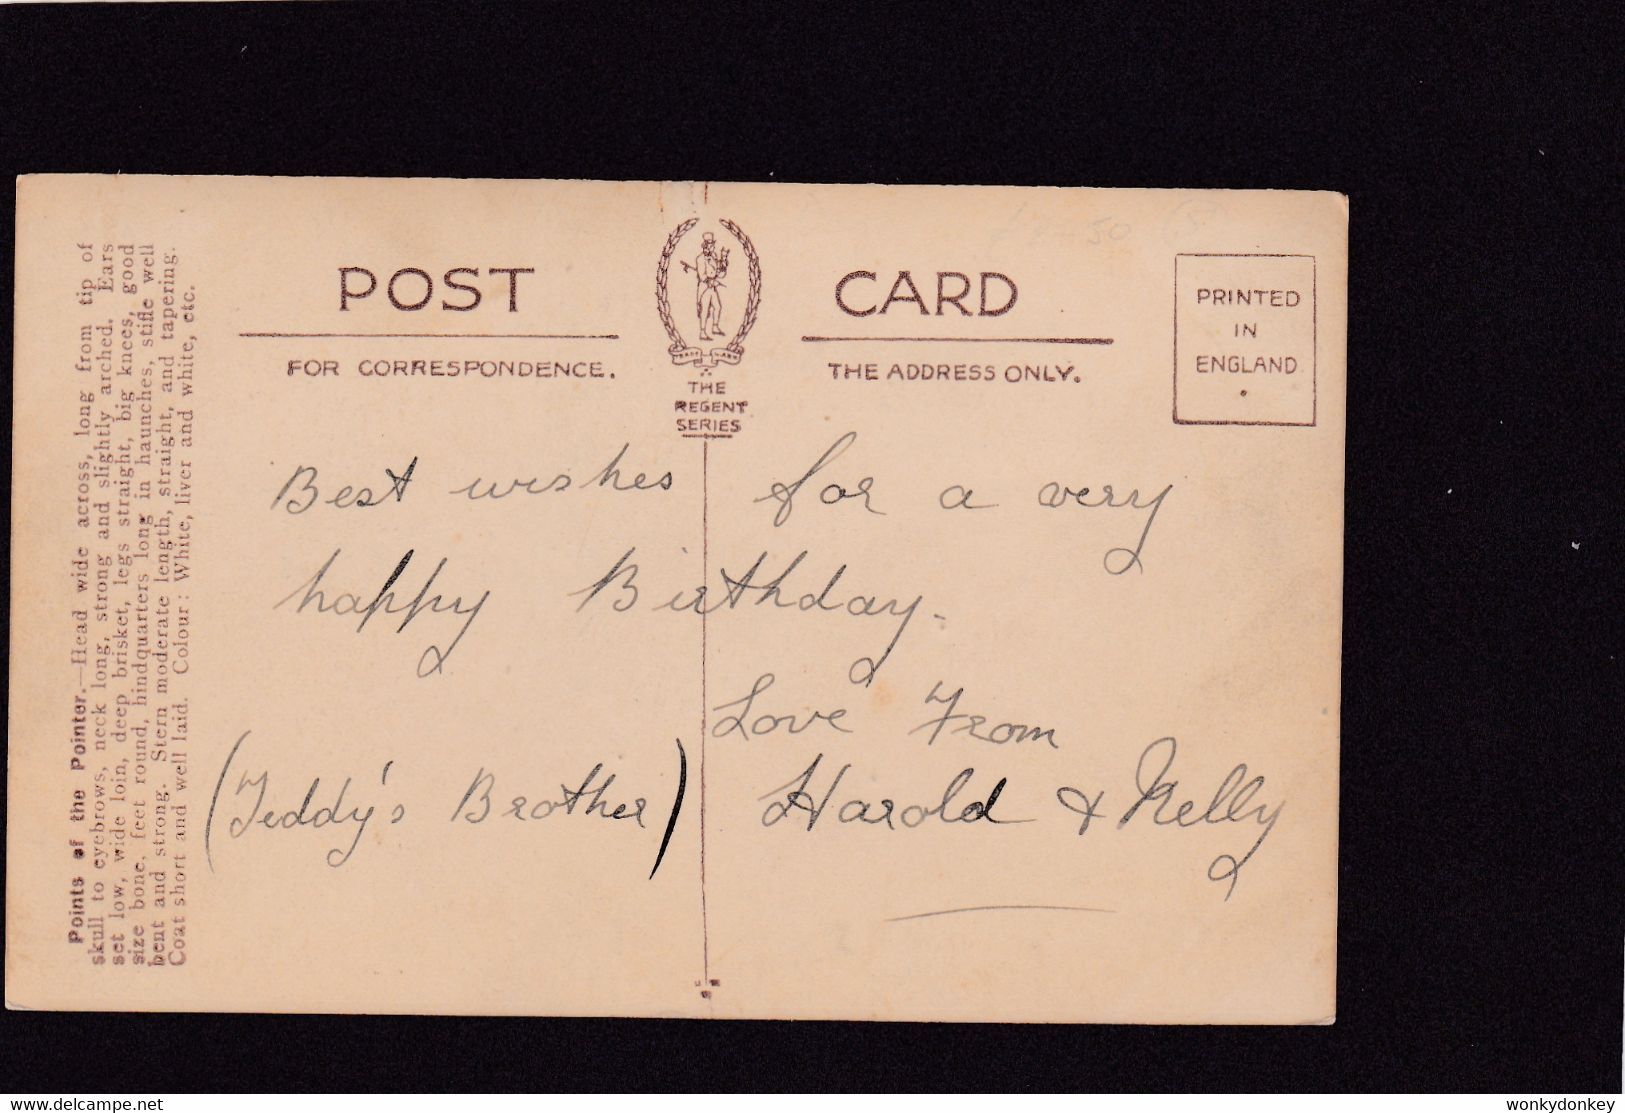 Points of the Pointer.—Head wide across, long from tip of
skull to eyebrows, neck long, strong and slightly arched. Ears
set low, wide loin, deep brisket, legs straight, big knees, good
size bone, feet round, hindquarters long in haunches, stifle well
bent and strong. Stern moderate length, straight, and tapering.
Coat short and well laid. Colour: White, liver and white, etc.
POST CARD
FOR CORRESPONDENCE.
THE ADDRESS ONLY.
TRADE MARK
THE
REGENT
SERIES
PRINTED
IN
ENGLAND
50
Best wishes for a very
happy Birthday.
Love From
(Teddy's Brother) Harold & Nelly
delcampe.net
wonkydonkey